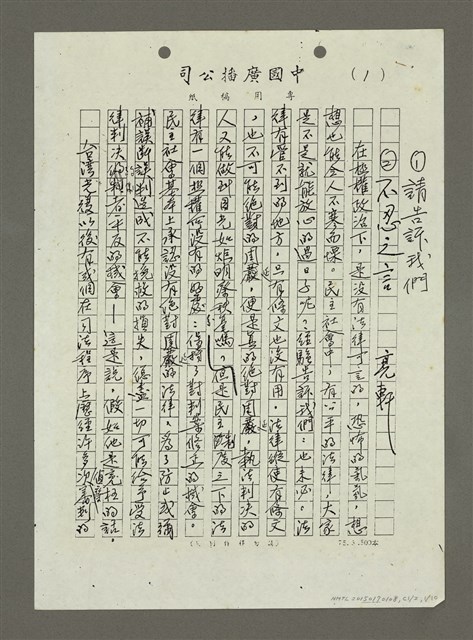 中國廣播公司
專用稿紙
(1)
①請告訴我們
②不忍之言 亮軒
在極權政治下，是沒有法律可言的，恐怖的亂亂，想
想也能令人不寒而慄。民主社會中，有公平的法律，大家
是不是就能放心的過日子呢？經驗告訴我們：也未必。法
律有管不到的地方，只有條文也沒有用。法律縱使有條文
，也不可能絕對的周嚴，便是善的絕對周嚴，執法判決的
人又能做到明光如炬明察秋毫嗎？但是民主制度之下的法
律有一個極權所沒有的好處：保證了對判案修正的機會。
民主社會基本上承認沒有絕對周嚴的法律，為了防止或彌
補誤斷誤判造成不能挽救的損失，總盡一切可能給予受法
律判決的輸者平反的機會——這是說，假如他是冤枉的話。
台灣光復以後有或個在司法程序上歷經許多次偵審判的